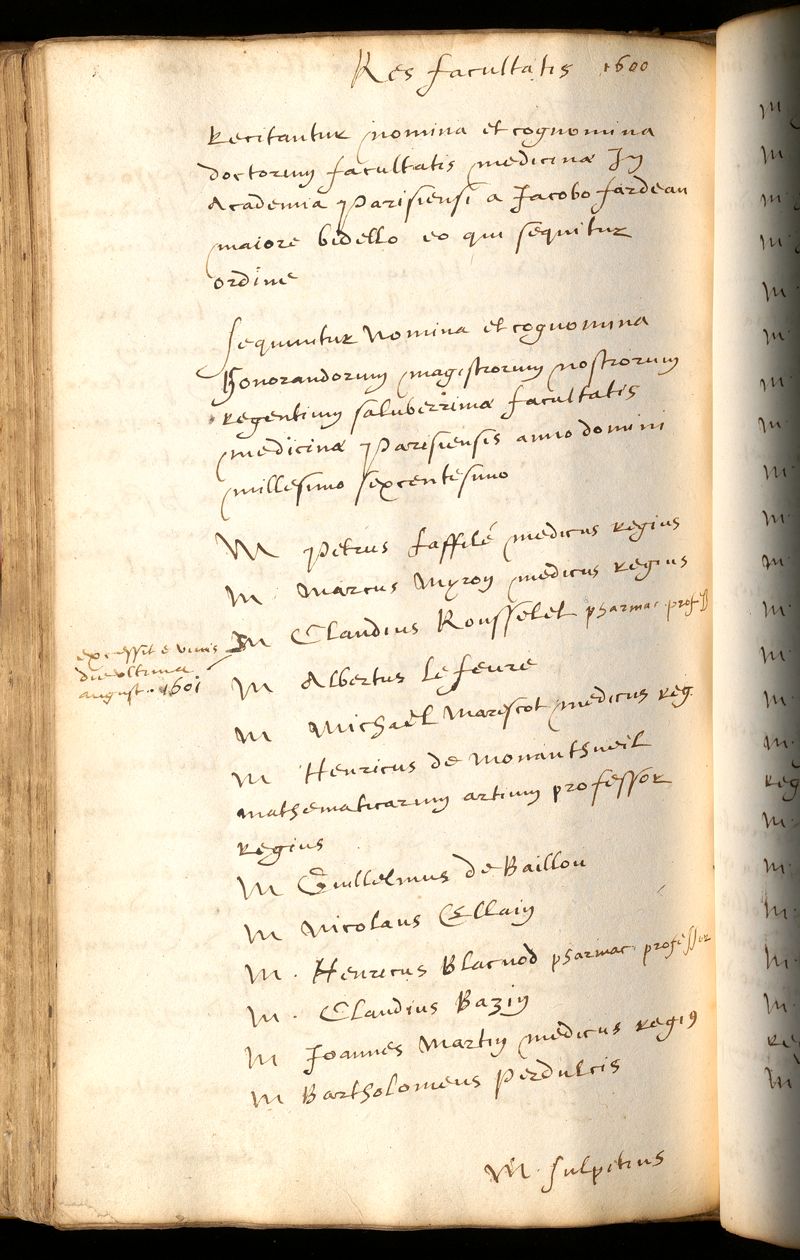 Res facultatis 1600
Recitantur nomina et cognomina
doctorum facultatis medicinæ In
Academia Parisiensi a Jacobo fardeau
maiore bidello eo qui sequitur
ordine
Sequuntur Nomina et cognomina
Honorandorum magistrorum nostrorum
regentium saluberrimæ facultatis
medicinæ Parisiensis anno domini
millesimo sexcentesimo
M Petrus Laffilé medicus regius
M. Marcus Myron medicus regius
M Claudius Rousselet pharmac. profess
excessit e vivis
die ultima
august. 1601
M Albertus Le feure
M Michaël Marescot medicus reg.
M Henricus de Monantheuil
mathematicarum artium professor
regius
M Guillelmus de Baillou
M Nicolaus Ellain
M. Henricus Blacuod pharmac. professor
M. Claudius Bazin
M Joannes Martin medicus regius
M Bartholomeus Perdulcis
M. sulpitius